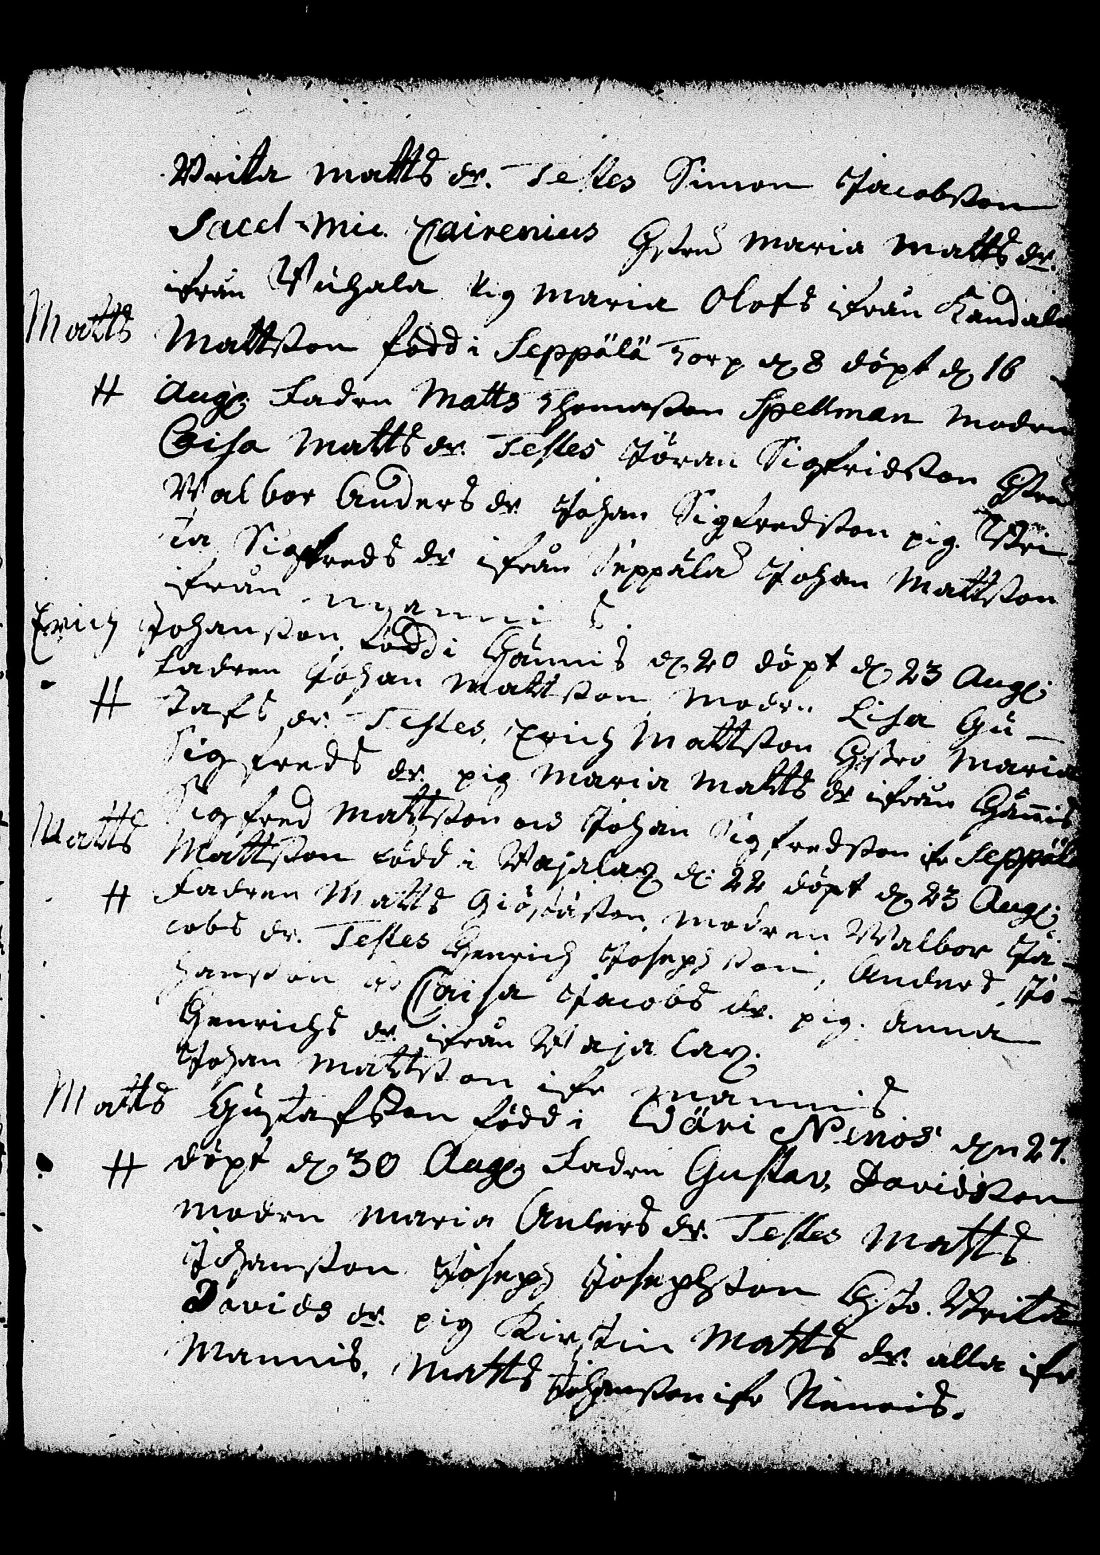 Brita Matts dr. Testes Simon Jacobsson
Sacel-Mic. Cairenius hustru Maria Matts dr.
ifrån Vuhala pig Maria Olofs ifrån Kandala
Matts Mattsson född i Seppälä Torp d 8 döpt d 16
# Aug. Fadren Matts Thomasson Spellman modren
Caisa Matts dr. Testes Jöran Sigfridsson hustru
Valbor Anders dr Johan Sigfredsson pig. Bri
ta Sigfreds dr ifrån Seppälä Johan Mattsson
ifrån Mannis.
Erich Johansson född i Hännis d 20 döpt d 23 Aug.
# Fadren Johan Mattsson modren Lisa Gu-
stafs dr. Testes, Erich Mattsson hustro Maria
Sigfreds dr. pig Maria Matts dr ifrån Hännis
Sigfred Mattsson Johan Sigfredsson ifr Seppälä
Matts Mattsson född i Vajalax d: 22 döpt d 23 Aug.
# Fadren Matts modren Walbor Ja-
cobs dr. Testes Henrich Josephsson, Anders Jo-
hansson Caisa Jacobs dr. pig. Anna
Henrichs dr. ifrån Wajalax.
Johan Mattsson ifr Mannis.
Matts Gustafsson född i den 27.
# döpt d 30 Aug. Fadren Gustav Davidsson
modren Maria Anders dr. Testes Matts
Johansson Joseph Josephsson Hustro. Brita
Davids dr. pig Kirstin Matts dr. alla ifr
Mannis. Matts Johansson ifr